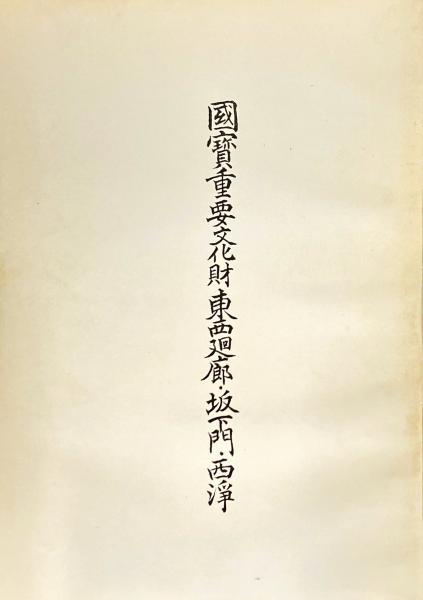 國寶重要文化財東西廻廊・坂下門・西淨